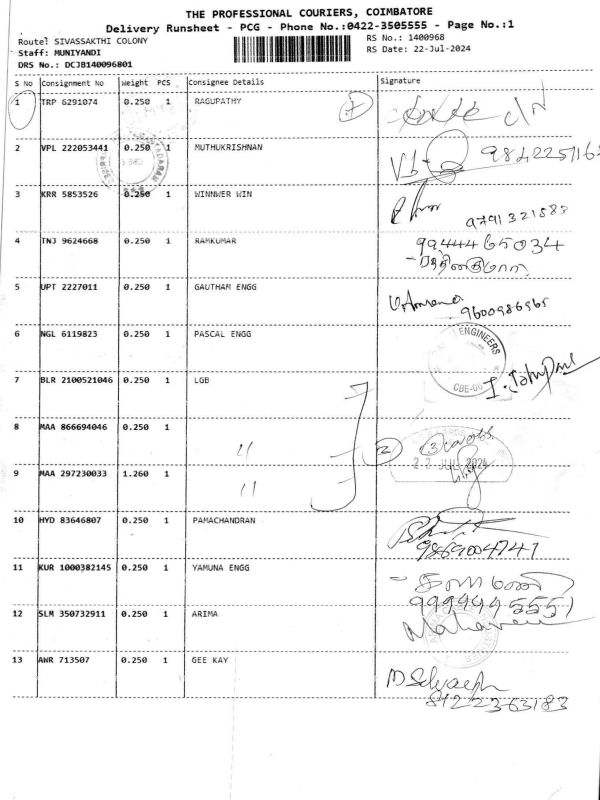 THE PROFESSIONAL COURIERS, COIMBATORE
Delivery Runsheet - PCG - Phone No.:0422-3505555 - Page No.:1
Route: SIVASSAKTHI COLONY
RS No.: 1400968
Staff: MUNIYANDI
RS Date: 22-Jul-2024
DRS No.: DCJB140096801
S No Consignment No Weight PCS Consignee Details Signature
1 TRP 6291074 0.250 1 RAGUPATHY
2 VPL 222053441 0.250 1 MUTHUKRISHNAN
3 KRR 5853526 0.250 1 WINNWER WIN
9791321583
4 TNJ 9624668 0.250 1 RAMKUMAR
9944465034
5 UPT 2227011 0.250 1 GAUTHAM ENGG
9600986565
6 NGL 6119823 0.250 1 PASCAL ENGG
ENGINEERS
7 BLR 2100521046 0.250 1 LGB
8 MAA 866694046 0.250 1 "
2
22 JUL 2024
9 MAA 297230033 1.260 1 "
10 HYD 83646807 0.250 1 PAMACHANDRAN
9869004741
11 KUR 1000382145 0.250 1 YAMUNA ENGG
12 SLM 350732911 0.250 1 ARIMA
13 AWR 713507 0.250 1 GEE KAY
8122363183